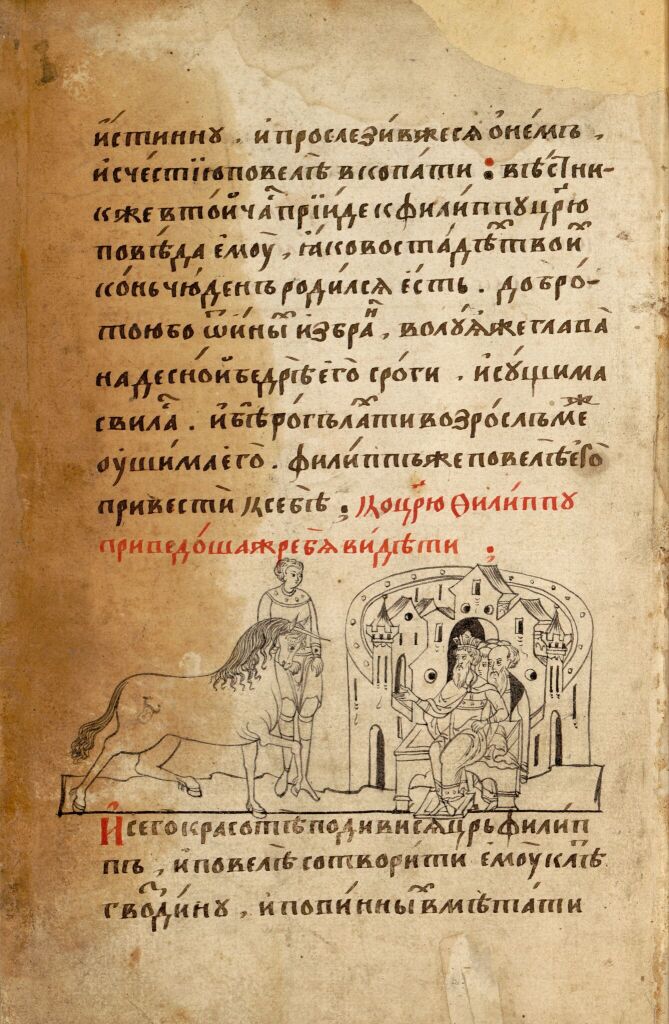 и҆́стинну . и҆ прослези́вжеся ѻ҆ не́мъ ,
и҆ с че́стїю повелѣ̀ вскопа́ти : вѣ́стни-
к же в то́й ча̑ прїи́де к фили́ппу цр҃ю
повѣ́да є҆моу̀ , ꙗ҆́ко во ста́дѣ̑ твоѝ
ко́нь чю́денъ роди́лся є҆́сть . добро́-
тою бо ѿ и҆ны̑ и҆збра́н , волу́ꙗже глава̀
на десно́й бедрѣ̀ є҆гѡ̀ с ро́ги . и҆ су́щима
свила̑ . и҆ бѣ̀ ро́гъ зла́ти возро́слъ меж
оу҆шима є҆го̀ . фили́ппъ же повелѣ̀ є҆го̀
привестѝ к себѣ̀ : Ко цр҃ю Ѳили́ппу
приведо́ша жребя̀ ви́дѣти :
И҆ сего̀ красотѣ̀ подиви́ся цр҃ь фили́п
пъ , и҆ повелѣ̀ сотвори́ти є҆моу̀ клѣ́
т во є҆ди́ну , и҆ пови́нны̑ вмѣта́ти